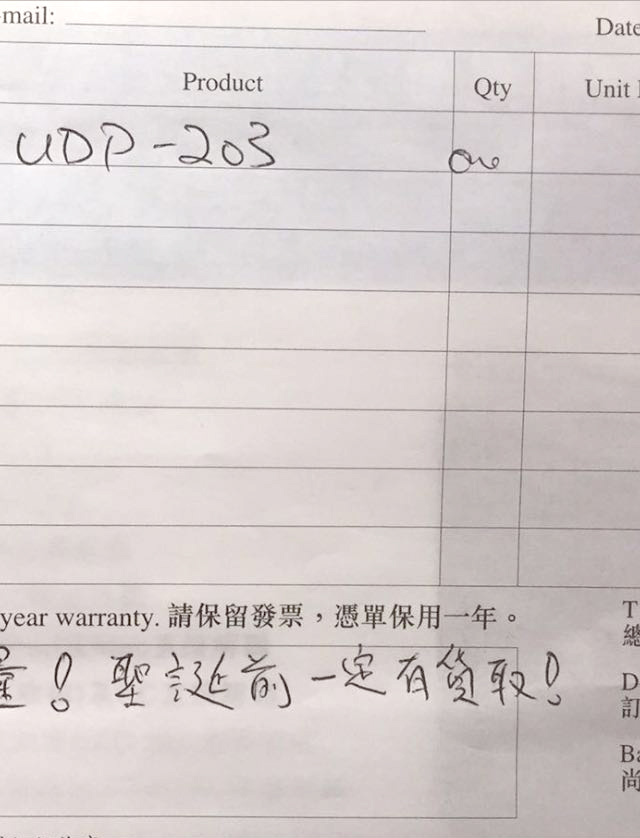 -mail:
Date
Product Qty Unit
UDP-203 One
year warranty. 請保留發票，憑單保用一年。
T
總
量！聖誕前一定有貨取！
D
訂
Ba
尚